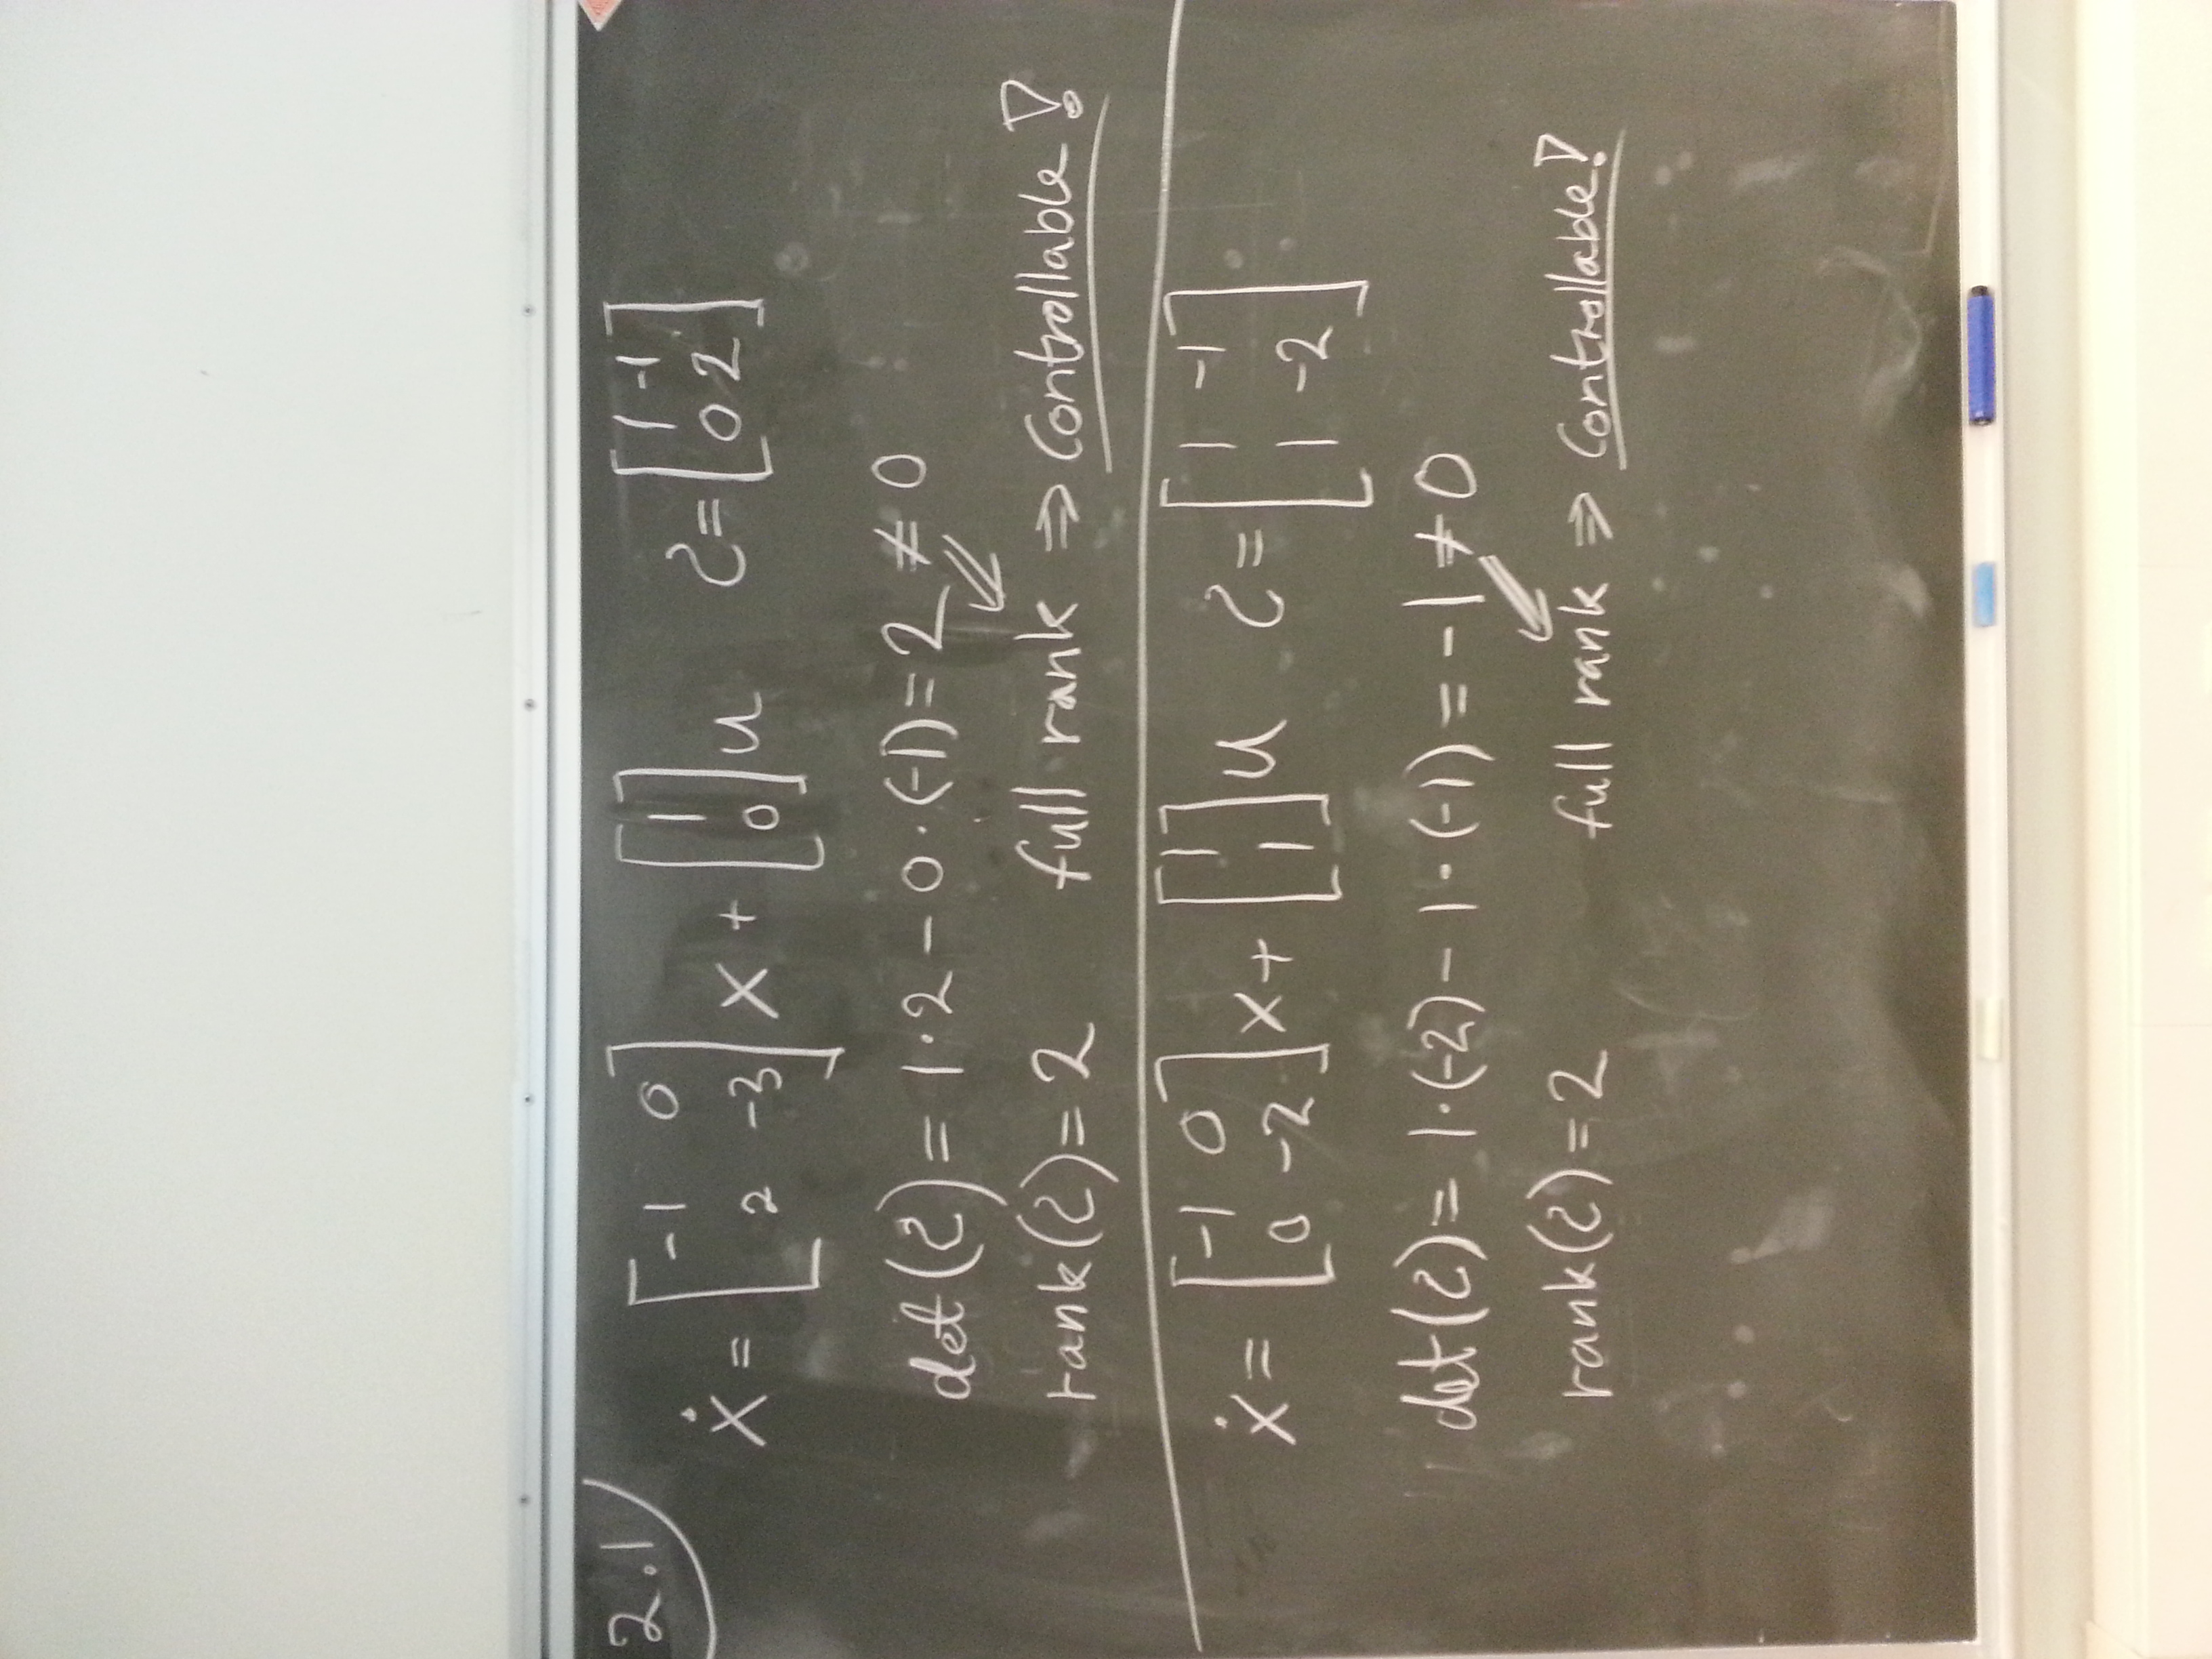 2.1
ẋ = [-1 0; 2 -3] x + [1; 0] u    C = [1 -1; 0 2]
det(C) = 1·2 - 0·(-1) = 2 ≠ 0
rank(C) = 2    full rank ⇒ Controllable!
ẋ = [-1 0; 0 -2] x + [1; 1] u    C = [1 -1; 1 -2]
det(C) = 1·(-2) - 1·(-1) = -1 ≠ 0
rank(C) = 2    full rank ⇒ Controllable!